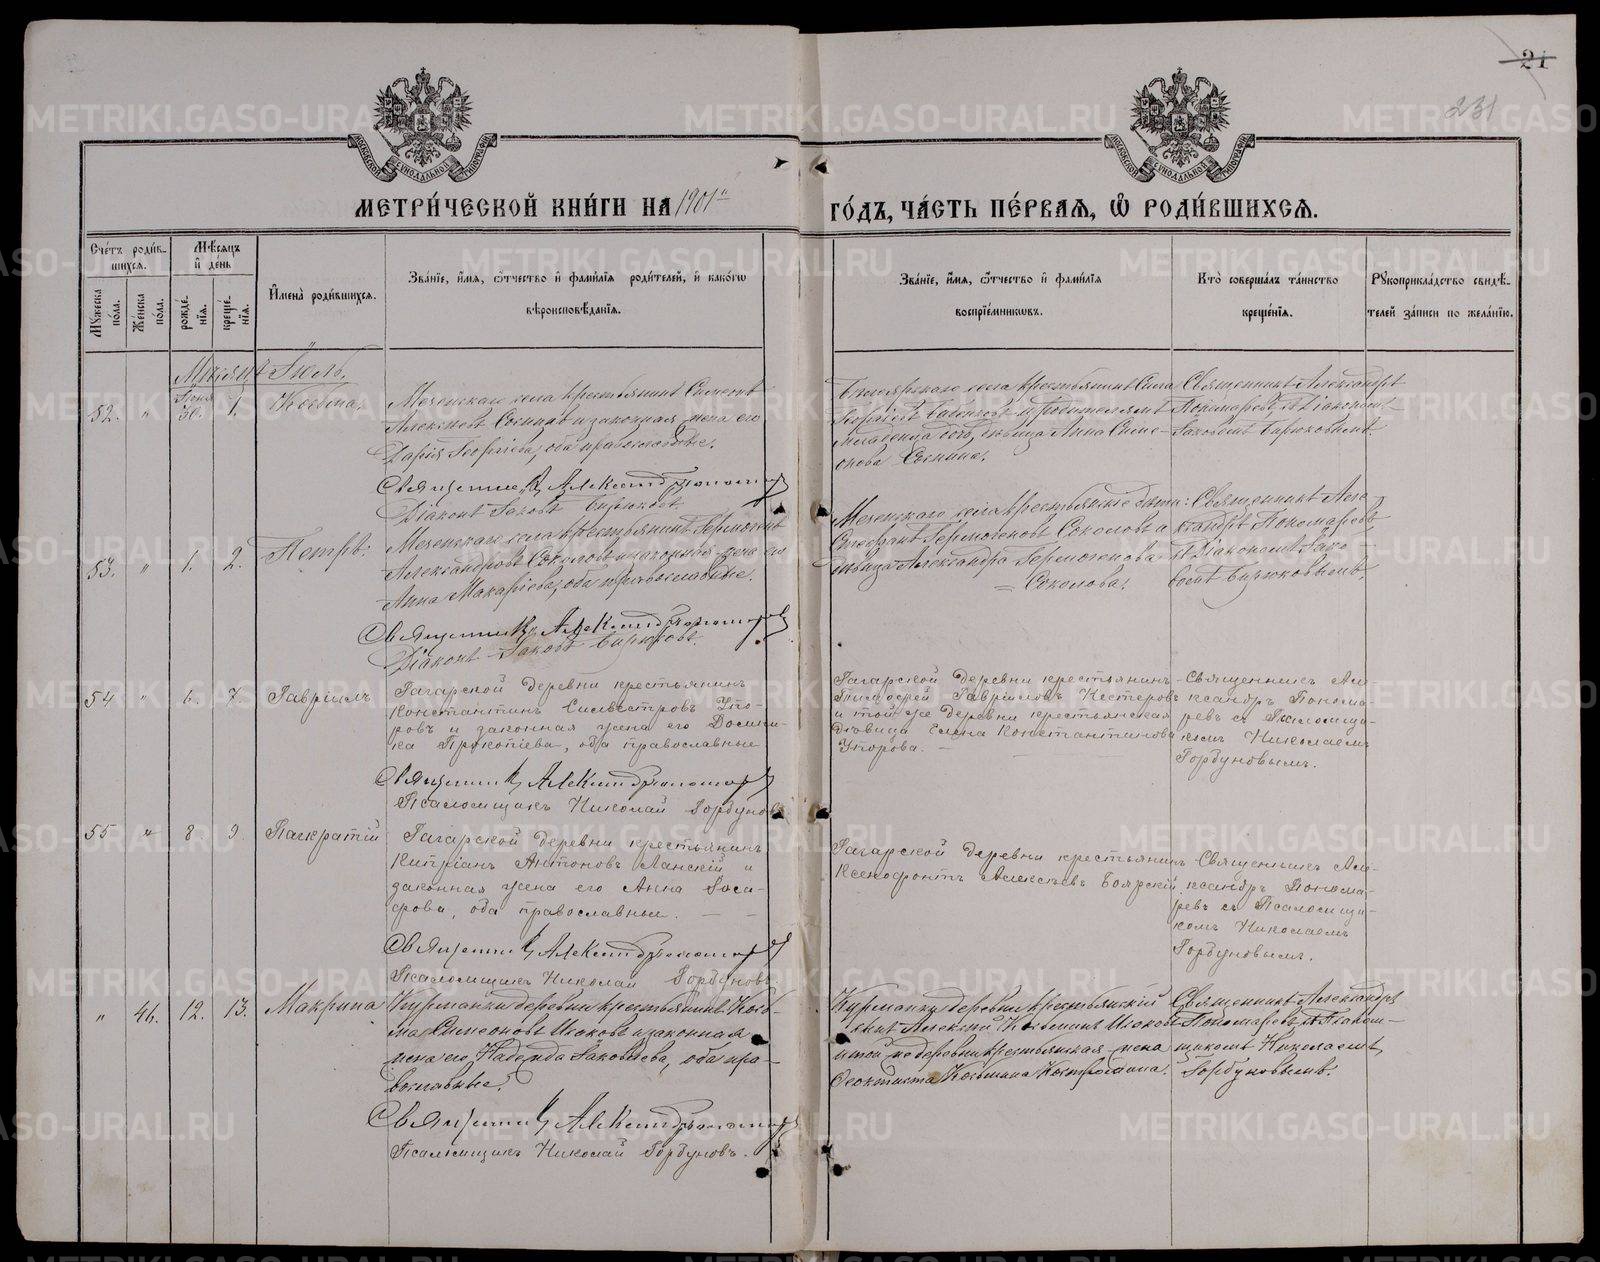 21
231
МЕТРИ́ЧЕСКОЙ КНИ́ГИ НА 1901й
ГО́ДЪ, ЧА́СТЬ ПЕ́РВАЯ, Ѡ РОДИ́ВШИХСЯ.
Сче́тъ роди́в-
шихся.
Мꙋжеска по́ла.
Же́нска по́ла.
Мѣ́сяцъ и де́нь
рожде́нїя.
креще́нїя.
И҆мена̀ роди́вшихся.
Зва́нїе, и҆́мя, ѻ҆́тчество и҆ фами́лїя роди́телей, и҆ како́гѡ
вѣроисповѣ́данїя.
Зва́нїе, и҆́мя, ѻ҆́тчество и҆ фами́лїя
воспрїе́мникѡвъ.
Кто̀ соверша́лъ та́инство
креще́нїя.
Рꙋкоприкла́дство свидѣ́-
телей за́писи по жела́нїю.
Мѣсяцъ Іюль.
52. " Іюня 30. 1.
Меженскаго села крестьянинъ Симеонъ
Алексѣевъ Соснинъ и законная жена его
Дарія Георгіева, оба православные.
Священникъ Александръ Пономаревъ
Діаконъ Іаковъ Бирюковъ.
села крестьянинъ Сила
Георгіевъ и родителямъ
младенца дочь, дѣвица Анна Симе-
онова Соснина.
Священникъ Александръ
Пономаревъ съ Діакономъ
Іаковомъ Бирюковымъ.
53. " 1. 2. Петръ.
Меженскаго села крестьянинъ Гермогенъ
Александровъ Соколовъ и законная жена его
Анна Макаріева, оба православные.
Священникъ Александръ Пономаревъ
Діаконъ Іаковъ Бирюковъ.
Меженскаго села крестьянскіе дѣти:
Стефанъ Гермогеновъ Соколовъ и
дѣвица Александра Гермогенова
Соколова.
Священникъ Але-
ксандръ Пономаревъ
съ Діакономъ Іако-
вомъ Бирюковымъ.
54 " 6. 7. Гавріилъ
Гагарской деревни крестьянинъ
Константинъ Сильвестровъ Упо-
ровъ и законная жена его Домни-
ка Прокопіева, оба православные
Священникъ Александръ Пономаревъ
Псаломщикъ Николай Горбуновъ
Гагарской деревни крестьянинъ
Тимофей Гавриловъ Нестеровъ
и той же деревни крестьянская
дѣвица Елена Константинова
Упорова.
Священникъ Але-
ксандръ Понома-
ревъ съ Псаломщи-
комъ Николаемъ
Горбуновымъ.
55 " 8. 9. Панкратій
Гагарской деревни крестьянинъ
Кипріанъ Антоновъ Ланскій и
законная жена его Анна Іоси-
фова, оба православные.
Священникъ Александръ Пономаревъ
Псаломщикъ Николай Горбуновъ
Гагарской деревни крестьянинъ
Ксенофонтъ Алексѣевъ Боярскій.
Священникъ Але-
ксандръ Понома-
ревъ съ Псаломщи-
комъ Николаемъ
Горбуновымъ.
" 46. 12. 13. Макрина
Курманки деревни крестьянинъ Косьма
Симеоновъ Исаковъ и законная
жена его Надежда Іаковлева, оба пра-
вославные.
Священникъ Александръ Пономаревъ
Псаломщикъ Николай Горбуновъ.
Курманки деревни крестьянскій
сынъ Алексѣй Косьминъ Исаковъ
и той же деревни крестьянская жена
Феоктиста Косьмина
Священникъ Александръ
Пономаревъ съ Псалом-
щикомъ Николаемъ
Горбуновымъ.
METRIKI.GASO-URAL.RU